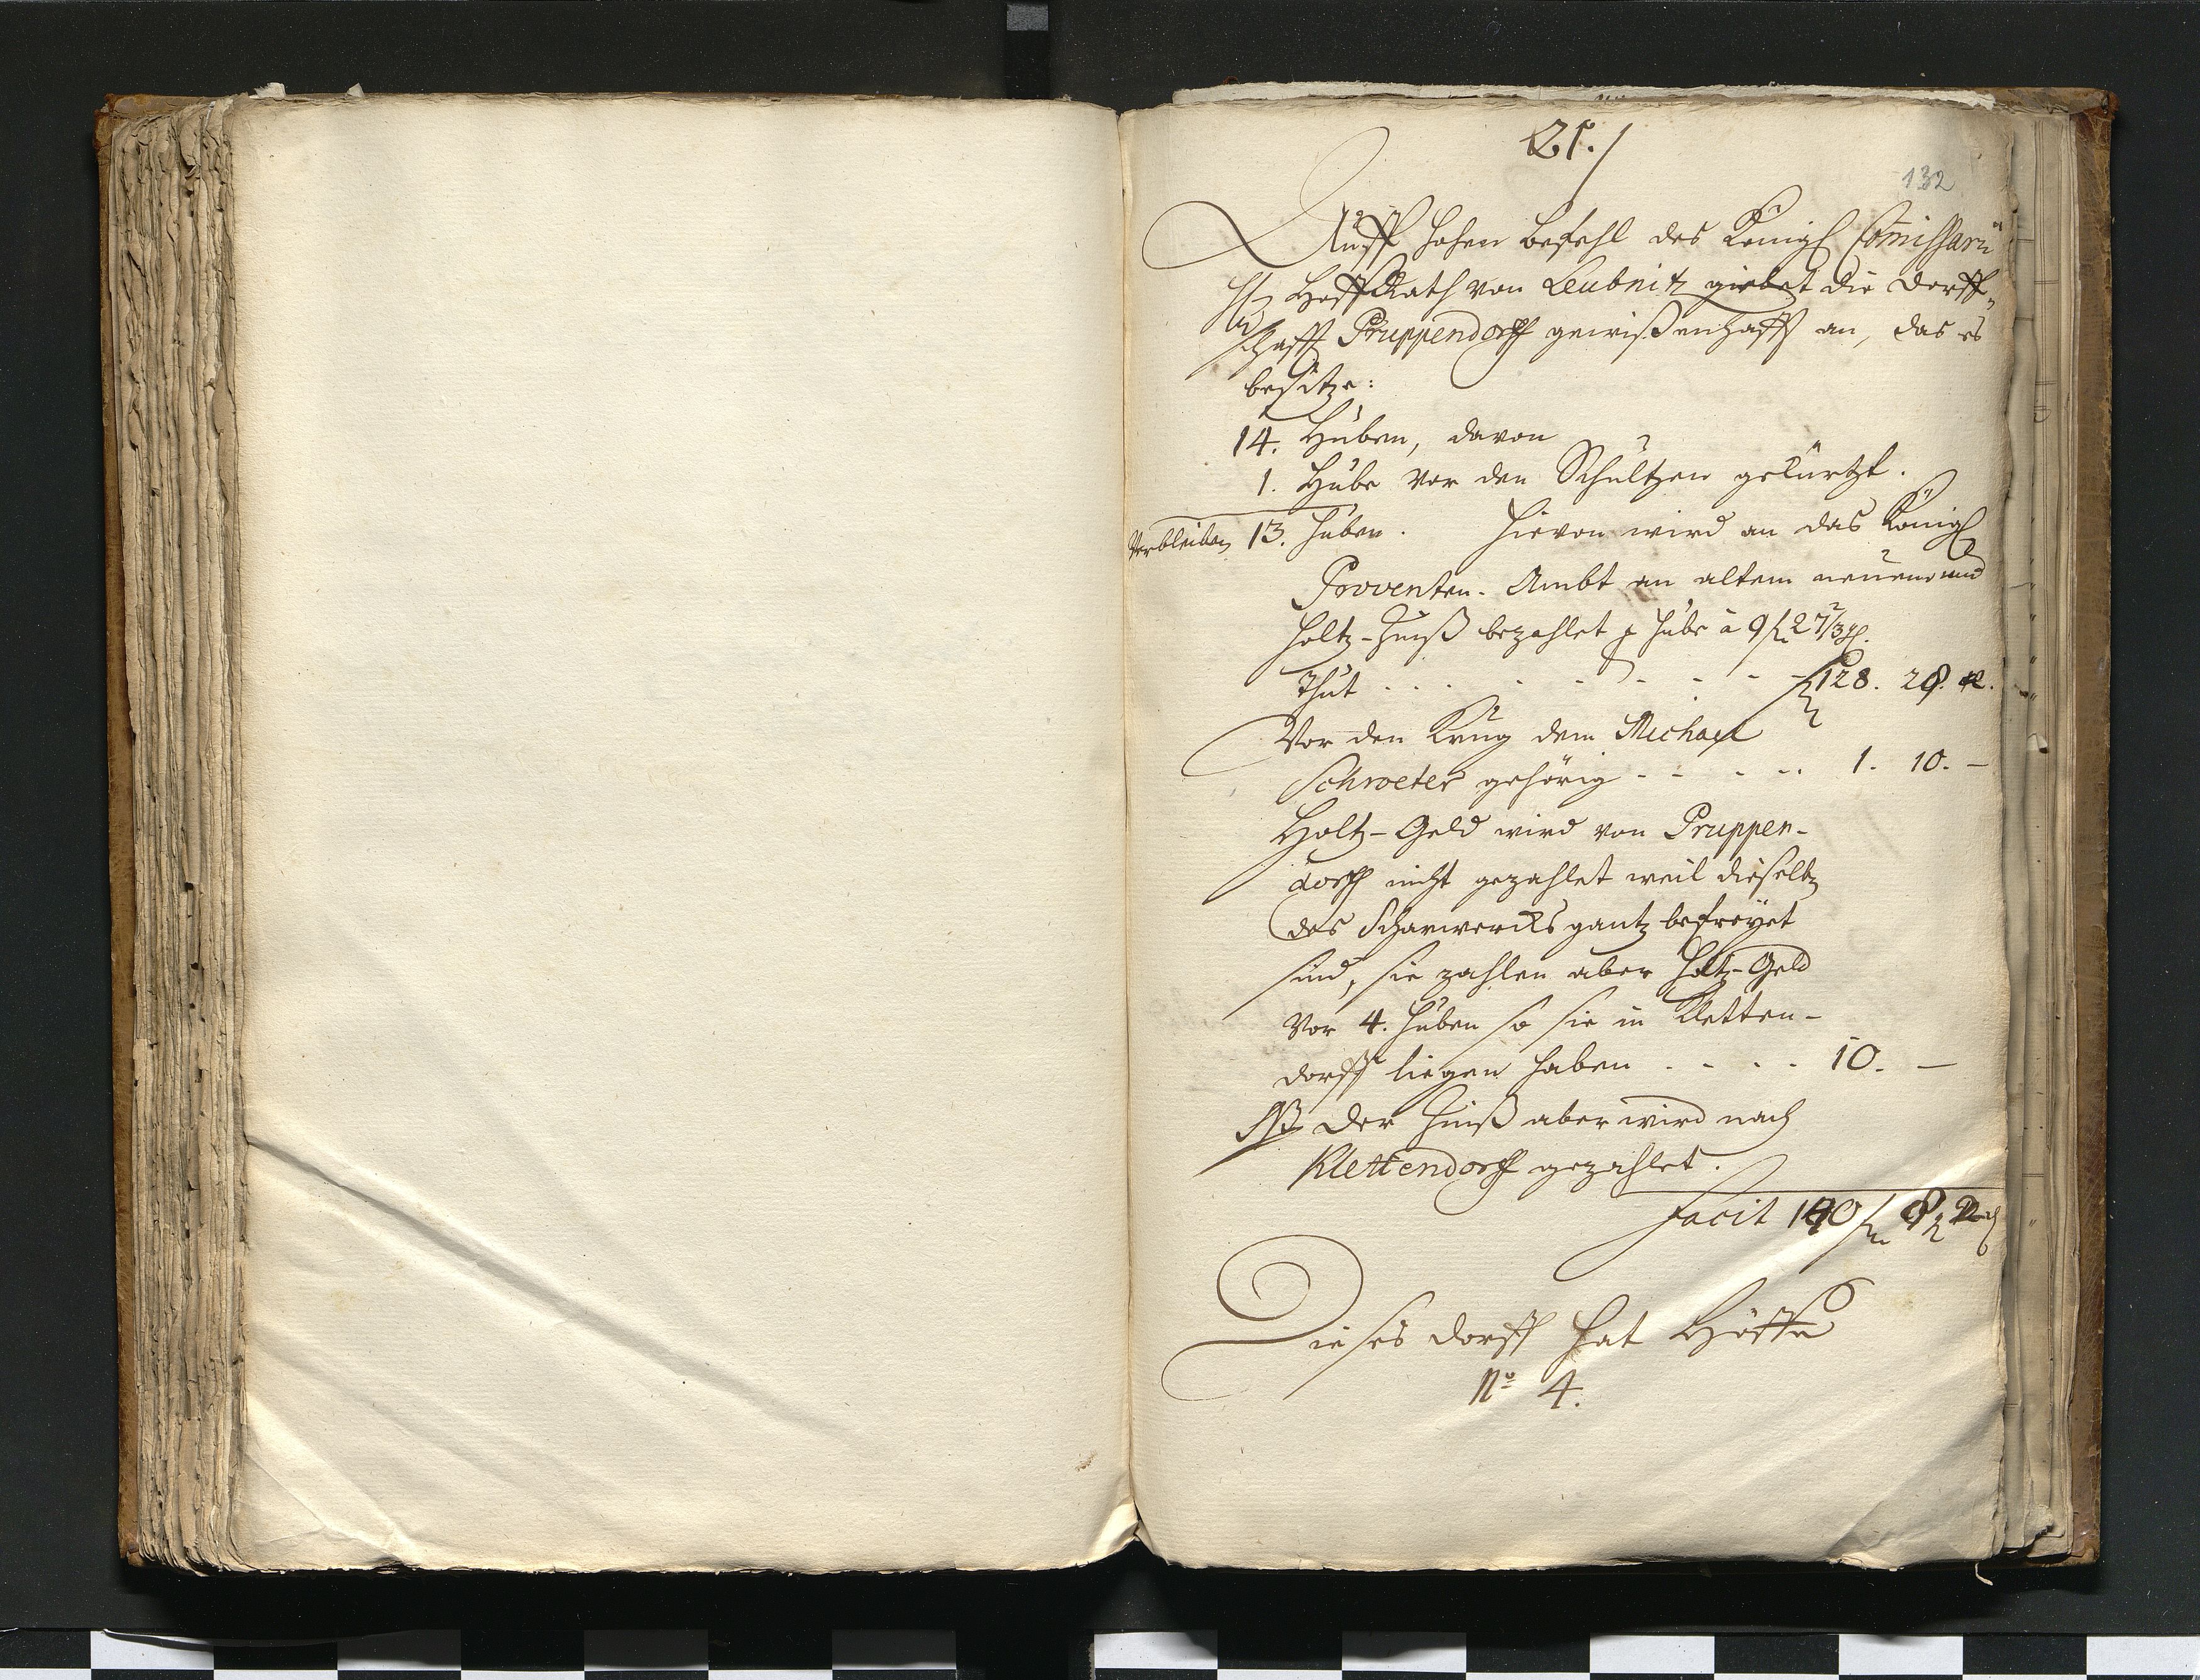 21./
132
Auff hohen Befehl des Königl Comissarii
H. Hoff Rath von Leubnitz giebet die Dorff„
schafft Pruppendorff gewißenhafft an, das es
besitze:
14. Huben, davon
1. Hube vor den Schultzen gekürtzt.
Verbleiben 13. Huben. Hievon wird an das Königl
Proventen-Ambt an altem neuen und
Holtz-Zinß bezahlet p Hube à 9 f 27⅔ gl.
Thut - - - - - - - - f 128. 28. 12.
Vor den Krug dem Michael
Schroeter gehörig - - - - 1. 10. -
Holtz-Geld wird von Pruppen-
dorff nicht gezahlet weil dieselbe
des Scharwercks gantz befreyet
sind, sie zahlen aber Holtz-Geld
Vor 4. Huben so sie in Kletten-
dorff liegen haben - - - - 10. -
NB Der Zinß aber wird nach
Klettendorff gezahlet.
Facit 140 f 8
Dieses Dorff hat Höffe
No 4.